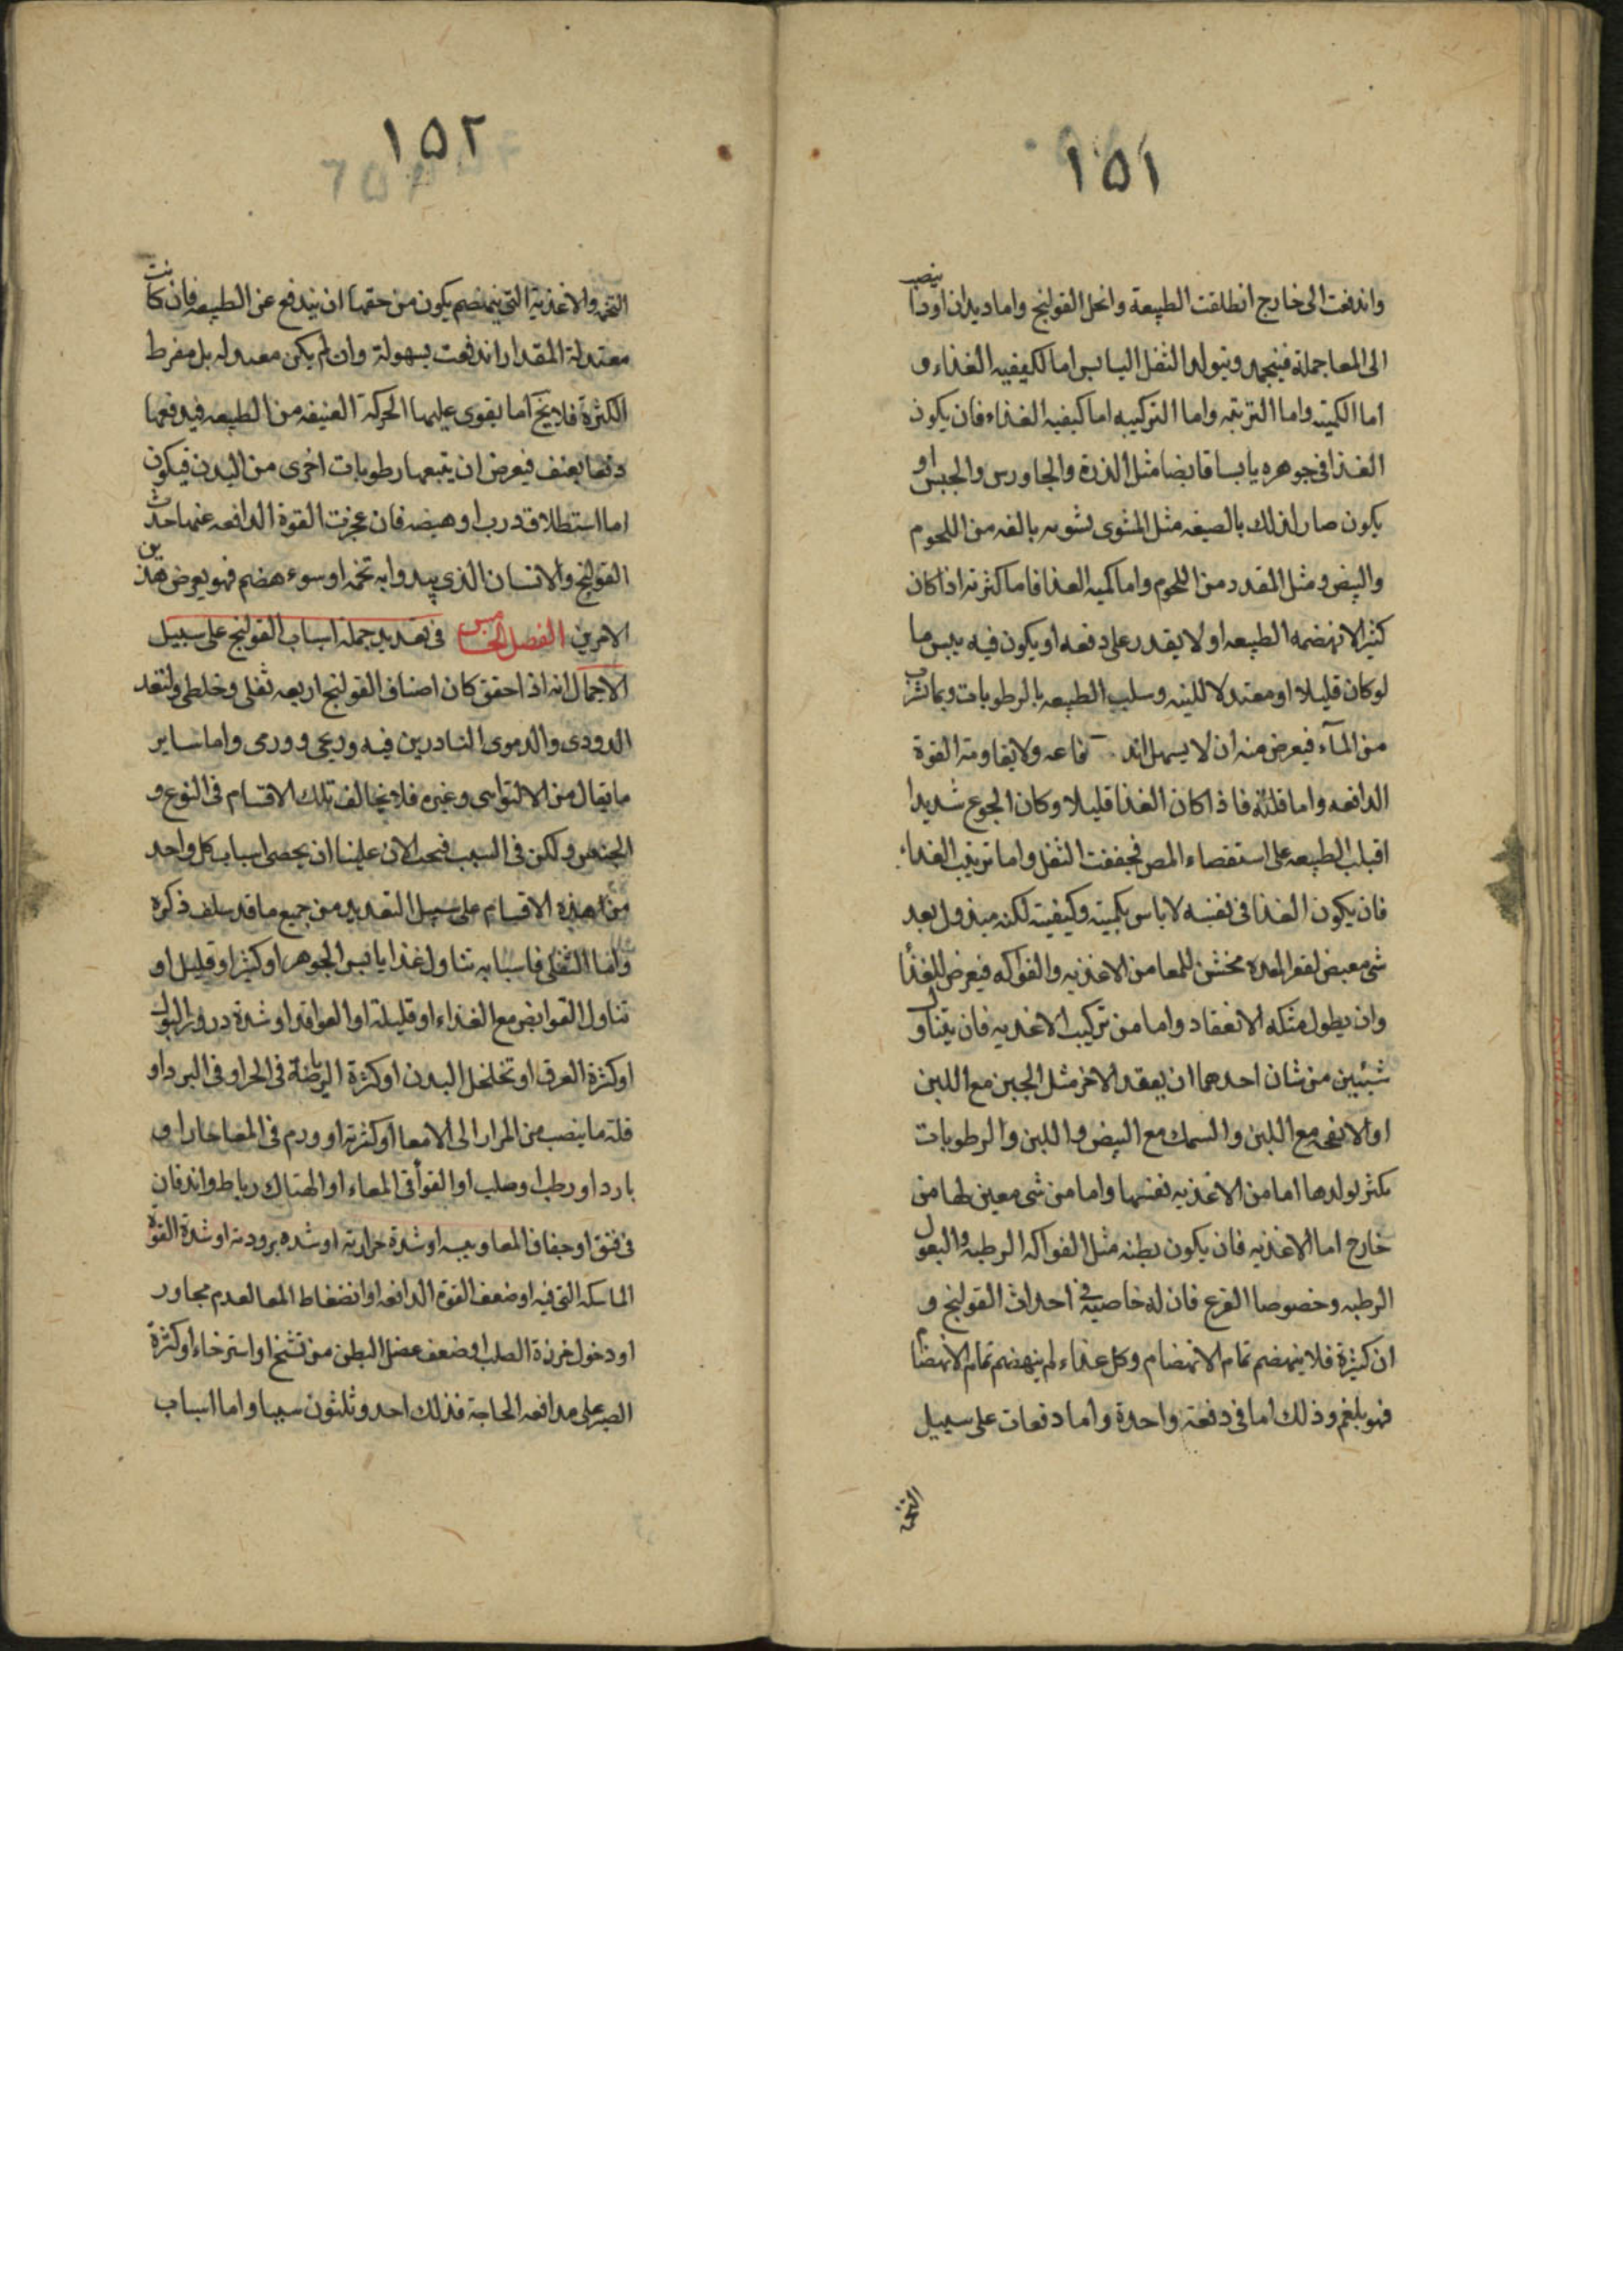 ١٥١
واندفعت الى خارج انطلقت الطبيعة وانحل القولنج واما ديدان او دما ينصب
الى المعا جملة فينجمد ويتولد الثفل اليابس اما لكيفيه الغذاء و
اما لكميته واما الترتيبه واما التركيبه اما كيفيه الغذاء فان يكون
الغذا فى جوهره يابسا قابضا مثل الذرة والجاورس والجبن او
يكون صار لذلك بالصيغه مثل المشوى بشويه بالغه من اللحوم
والبيض ومثل المقدد من اللحوم واما كميه الغذا فاما كثرته اذا كان
كثيرا لا تهضمه الطبيعه او لا يقدر على دفعه او يكون فيه يبس ما
لو كان قليلا او معتدلا للينه وسلب الطبيعه بالرطوبات وبما تشرب
من المآء فيعرض منه ان لا يسهل اند فاعه ولا يقاومة القوة
الدافعه واما قلته فاذا كان الغذا قليلا وكان الجوع شديدا
اقبلت الطبيعه على استقصاء المص فجففت الثفل واما ترتيب الغذاء
فان يكون الغذا فى نفسه لا باس بكميته وكيفيته لكنه مبذول بعد
شى معبض لقعر المعده مخشن للمعا من الاغذيه والفواكه فيعرض للغذأ
وان يطول مثكه الانعقاد واما من تركيب الاغذيه فان يتناول
شيئين من شان احدهما ان يعقد الاخر مثل الجبن مع اللبن
او الانفحه مع اللبن والسمك مع البيض واللبن والرطوبات
بكثر تولدها اما من الاغذيه نفسها واما من شى معين لها من
خارج اما الاغذيه فان يكون رطبه مثل الفواكه الرطبه والبقول
الرطبه وخصوصا القرع فان له خاصيه فى احداث القولنج و
ان كثيرة فلا ينهضم تمام الانهضام وكل غذاء لم ينهضم تمام الانهضام
فهو بلغم وذلك اما فى دفعة واحدة واما دفعات على سبيل
التخمه
١٥٢
التخمه والاغذية التى ينهضم يكون من حقها ان يندفع عن الطبيعه فان كانت
معتدلة المقدار اندفعت بسهولة وان لم يكن معتدله بل مفرط
الكثرة فلا يخ اما يقوى عليها الحركة العنيفه من الطبيعه فيدفعها
دفعا بعنف فيعرض ان يتبعها رطوبات اخرى من البدن فيكون
اما استطلاق درب او هيضه فان عجزت القوة الدافعه عنها حدث
القولنج والانسان الذى يبدوا به تخمه او سوء هضم فهو يعرض هذين
الامرين الفصل الخامس فى تعديد جملة اسباب القولنج على سبيل
الاجمال انه اذا حقق كان اصناف القولنج اربعه ثفلى وخلطى ولنعد
الدودى والدموى النادرين فيه وريحى وورمى واما ساير
ما يقال من الالتوايى وغيره فلا يخالف تلك الاقسام فى النوع و
الجنس ولكن فى السبب فيجب الان علينا ان يحصى اسباب كل واحد
من هذه الاقسام على سبيل التعديد من جميع ما قد سلف ذكره
واما الثفلى فاسبابه تناول غذا يابس الجوهر او كثيرا و قليل او
تناول القوابض مع الغذاء او قليلة او العواقد او شدة درور البول
او كثرة العرق او تخلخل البدن او كثرة الرياضة فى الحر او فى البرد او
قلة ما ينصب من المرار الى الامعا او كثرته او ورم فى المعا حارا و
بارد او رطب او صلب او القوأ فى المعاء او الهتاك رباط واندفان
فى فتق او جفاف المعا ويبسه او شدة حرارته او شده برودته او شدة القوة
الماسكه التى فيه او ضعف القوة الدافعه او انضغاط المعا لعدم مجاور
او دخول خرزة الصلب او ضعف عضل البطن من تشنج او استرخاء او كثرة
الصبر على مدافعه الحاجة فذلك احد وثلثون سببا واما اسباب